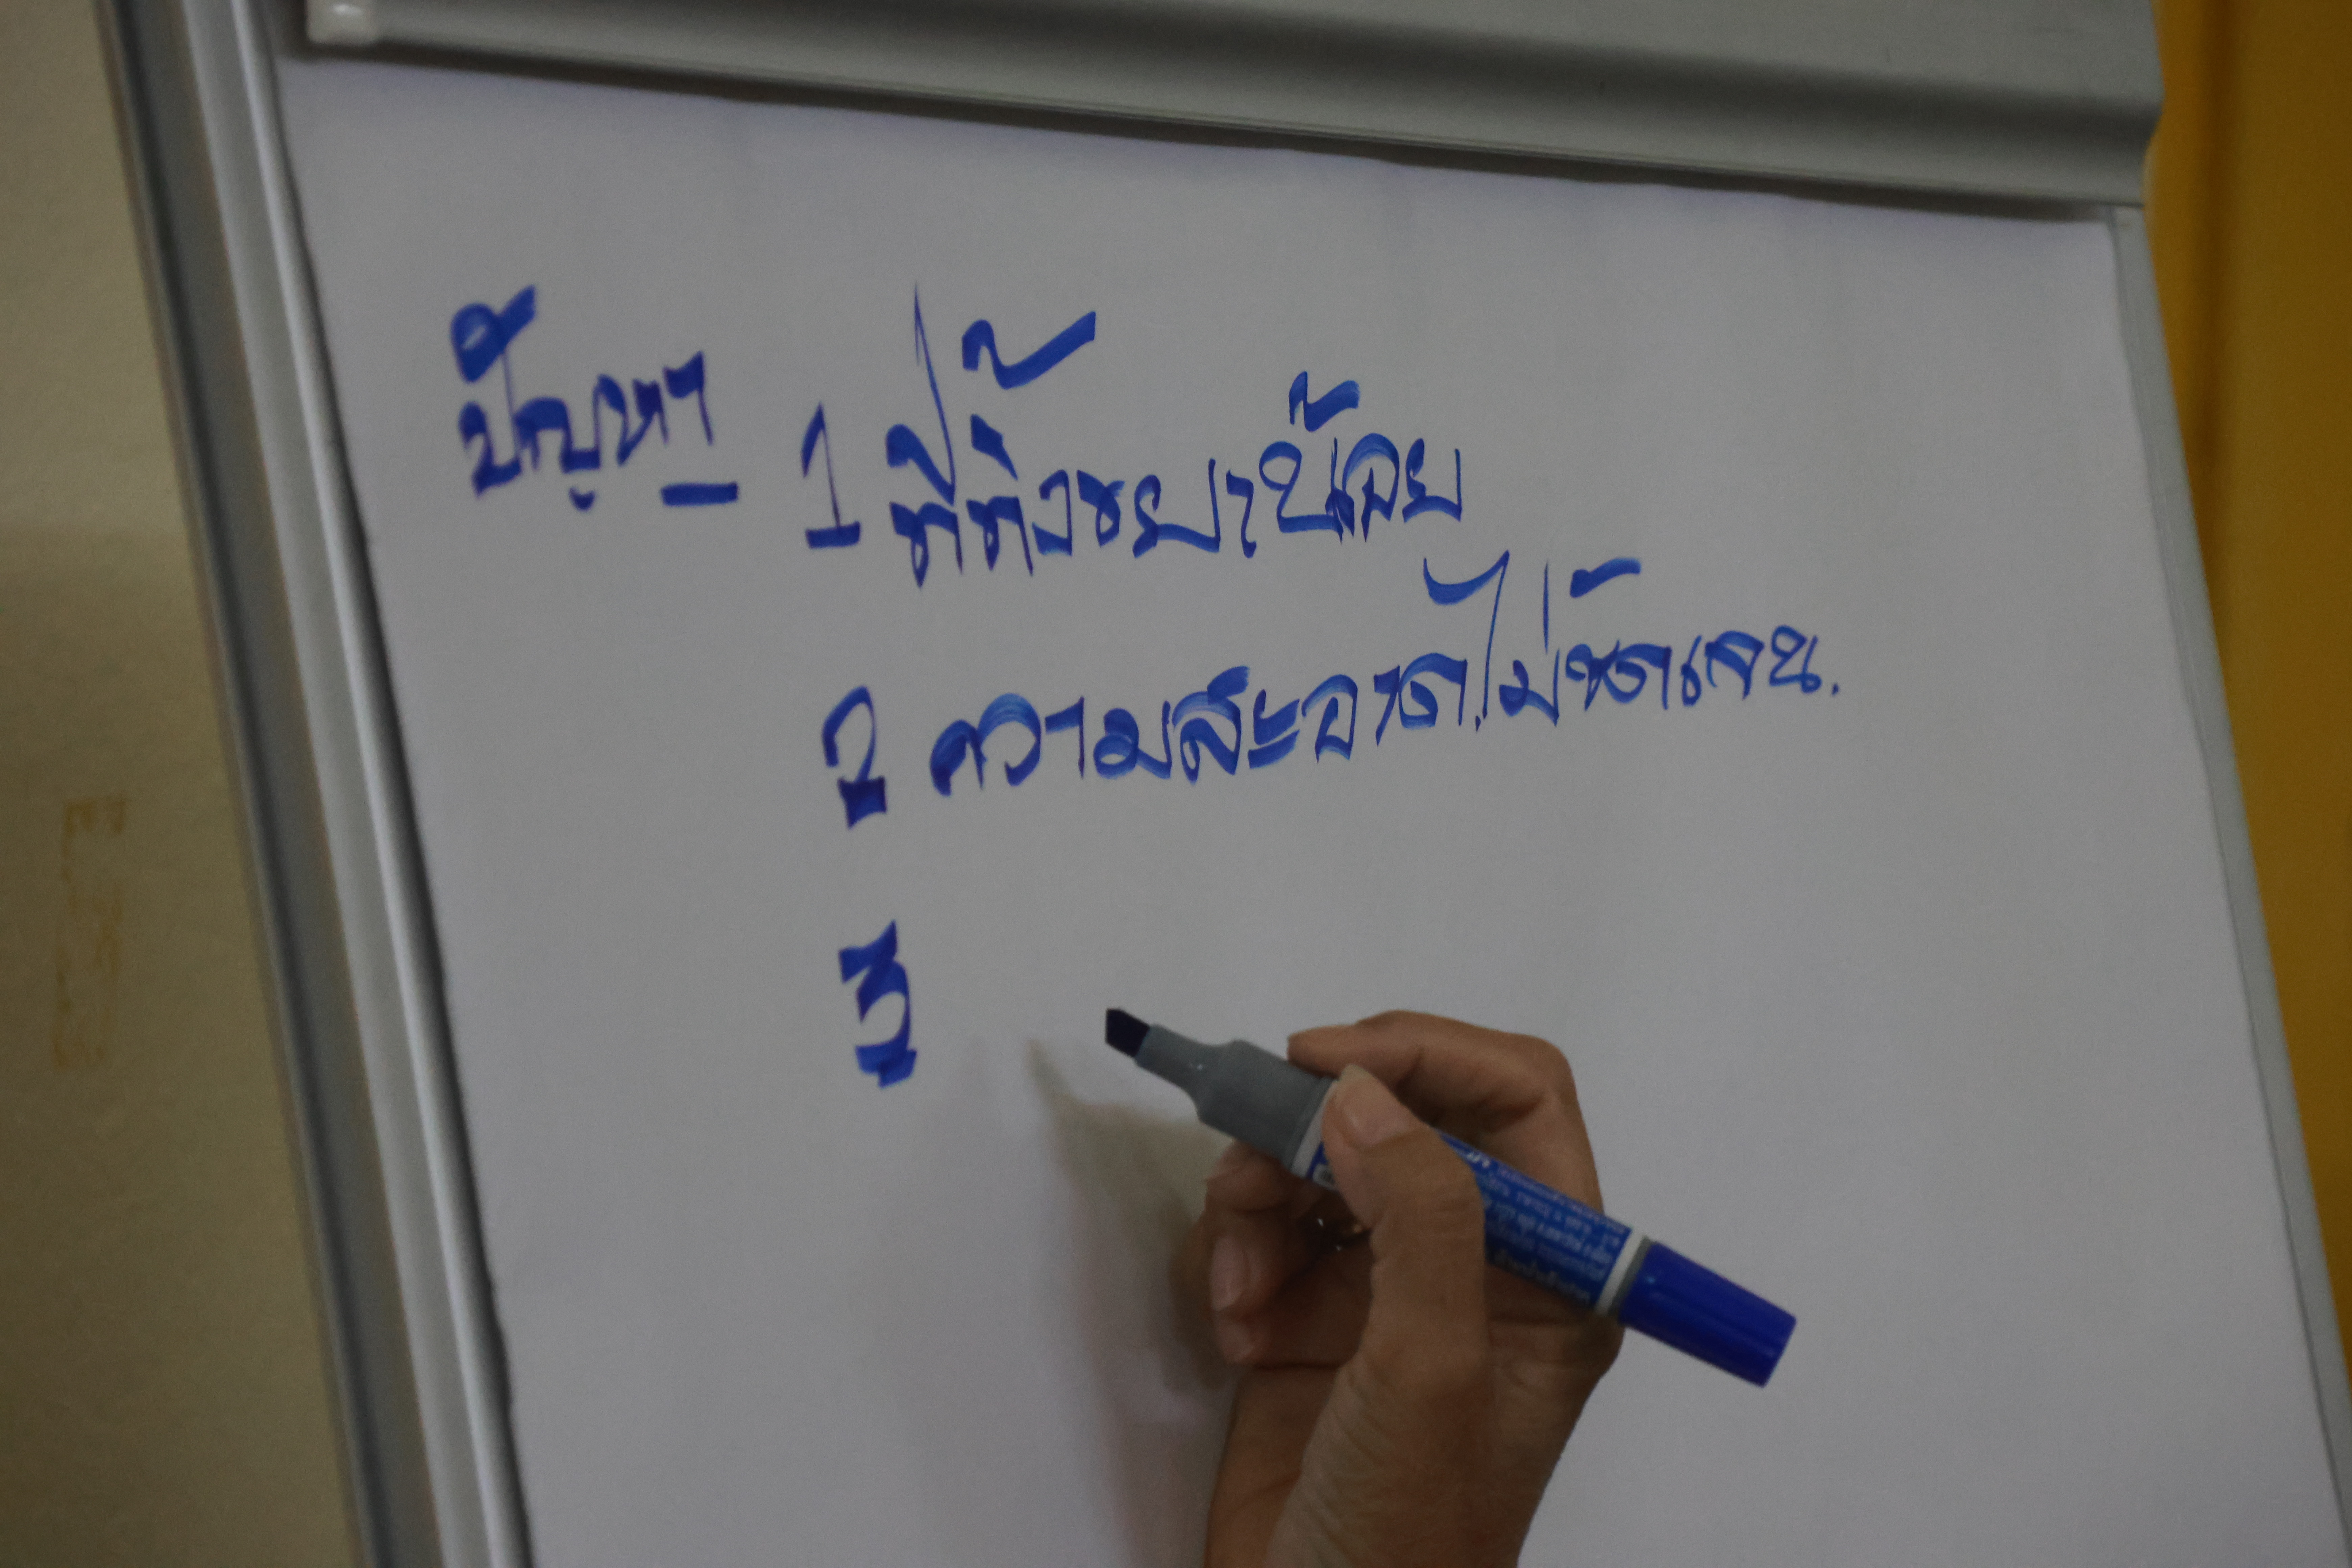 ปัญหา - 1 ที่ทิ้งขยะน้อย
2 ความสะอาดไม่ชัดเจน.
3